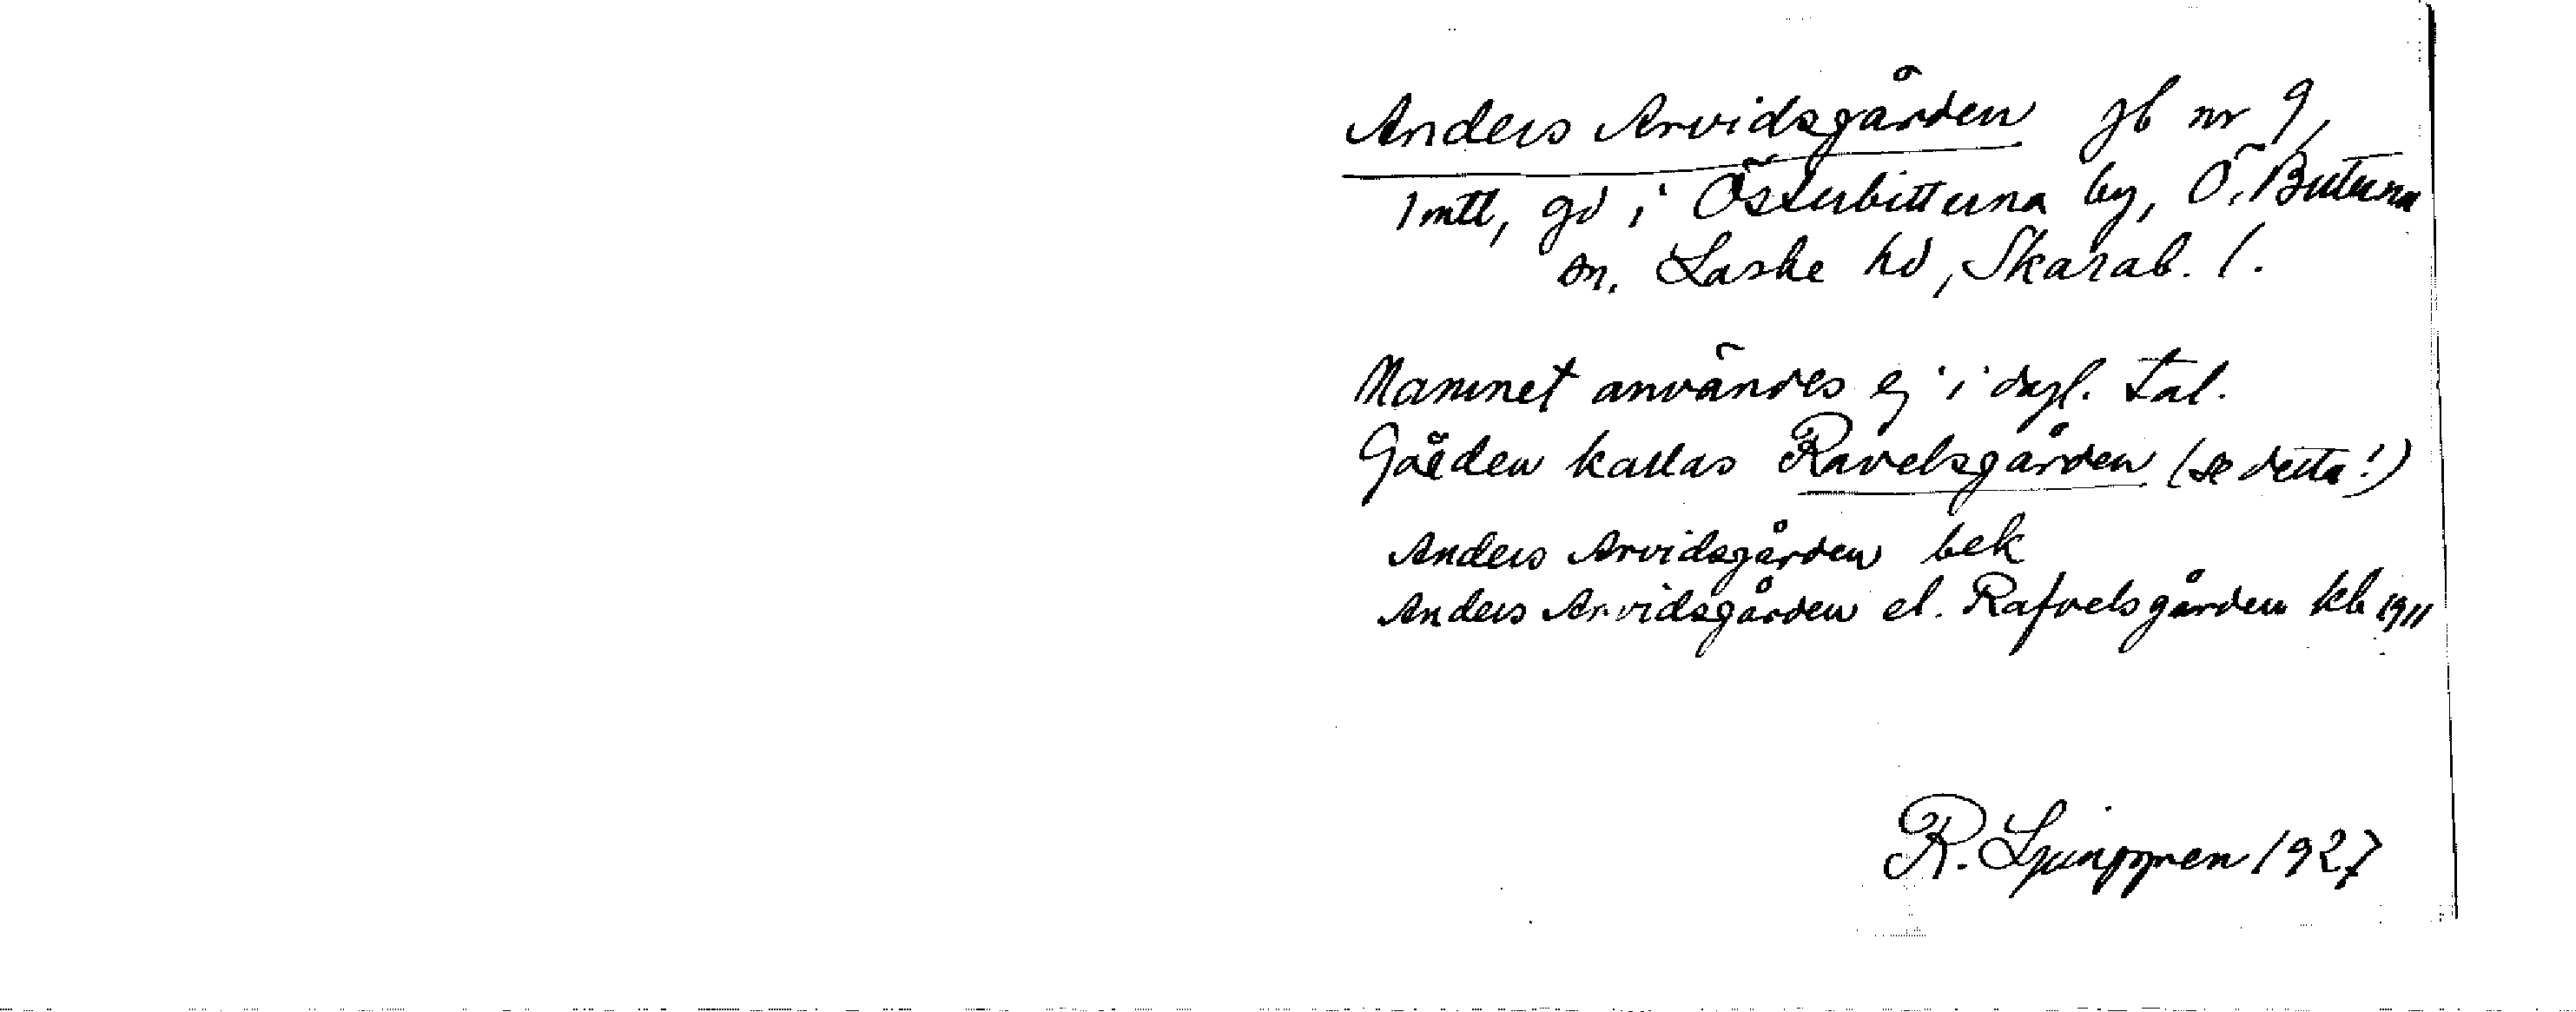 Anders Arvidsgården jb nr 9,
1 mtl, gd i Österbitterna by, Ö. Bitterna
sn. Laske hd, Skarab. l.
Namnet användes ej i dagl. tal.
Gården kallas Ravelsgården (se detta!)
Anders Arvidsgården bek
Anders Arvidsgården el. Rafvelsgården kb 1911
R. Ljunggren 1927